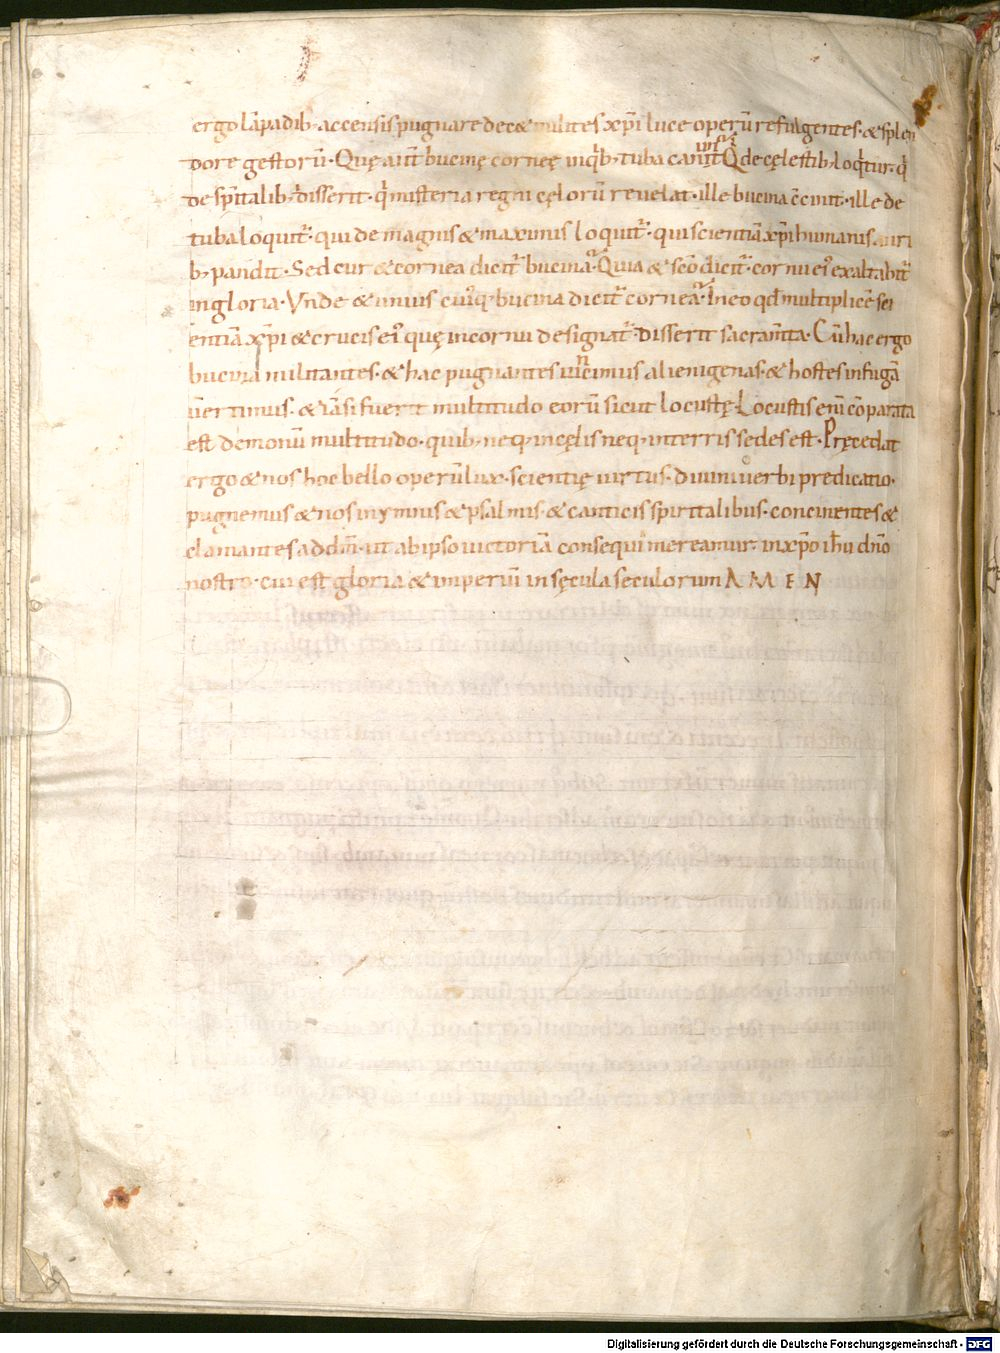 ergo lāpadib; accensis pugnare decet milites xp̄i luce operū refulgentes· & splen
dore gestorū· Quę aut̄ bucinę corneę inquib; tuba canit̄ Qui de cęlestib; loquitur· qui
de sp̄italib; disserit· qui misteria regni cęlorū reuelat· ille bucina c̄cinit· ille de
tuba loquit̄· qui de magnis & maximis loquit̄· qui scientiā xp̄i humanis auri
b; pandit· Sed cur & cornea dicit̄ bucina· Quia & scō dicit̄· cornu ei' exaltabit̄
in gloria· Vnde & unius cui'q; bucina dicit̄ cornea· In eo qd̄ multiplicē sci
entiā xp̄i & crucis ei' quę in cornu designat̄· disserit sacram̄ta· Cū hac ergo
bucina militantes· & hac pugnantes uincimus alienigenas· & hostes in fugā
uertimus· & iā si fuerit multitudo eorū sicut locustę· Locustis enī cōparata
est demonū multitudo· quib; neq; in cęlis neq; in terris sedes est· Pręcedat
ergo & nos hoc bello operū lux· scientię uirtus· diuini uerbi predicatio·
pugnemus & nos in ymnis & psalmis· & canticis spiritalibus· concinentes &
clamantes ad dm̄· ut ab ipso uictoriā consequi mereamur· in xp̄o ih̄u dn̄o
nostro· cui est gloria & imperiū in sęcula seculorum A M E N
Digitalisierung gefördert durch die Deutsche Forschungsgemeinschaft - DFG